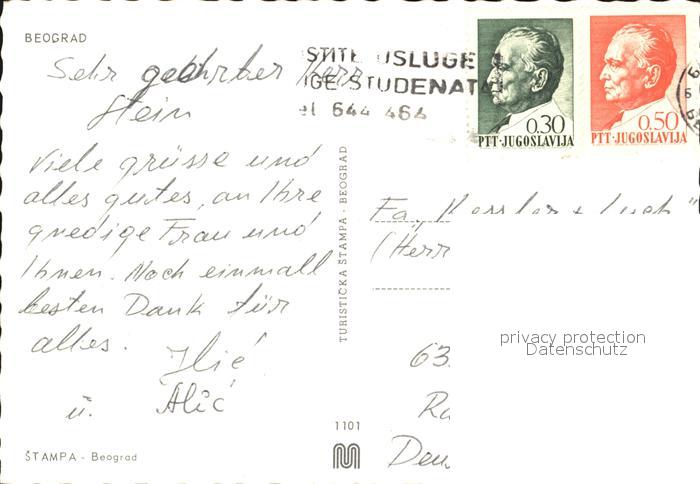 BEOGRAD
Sehr geehrter Herr
Stein
Viele grüsse und
alles gutes, an Ihre
gnedige Frau und
Ihnen. Noch einmall
besten Dank für
alles.
Ilić
u. Alić
ŠTAMPA - Beograd
TURISTIČKA ŠTAMPA - BEOGRAD
1101
STITE USLUGE
IGE STUDENATA
el 644 464
0.30
PTT·JUGOSLAVIJA
0.50
PTT·JUGOSLAVIJA
Fa.
(Herr
63
privacy protection
Datenschutz